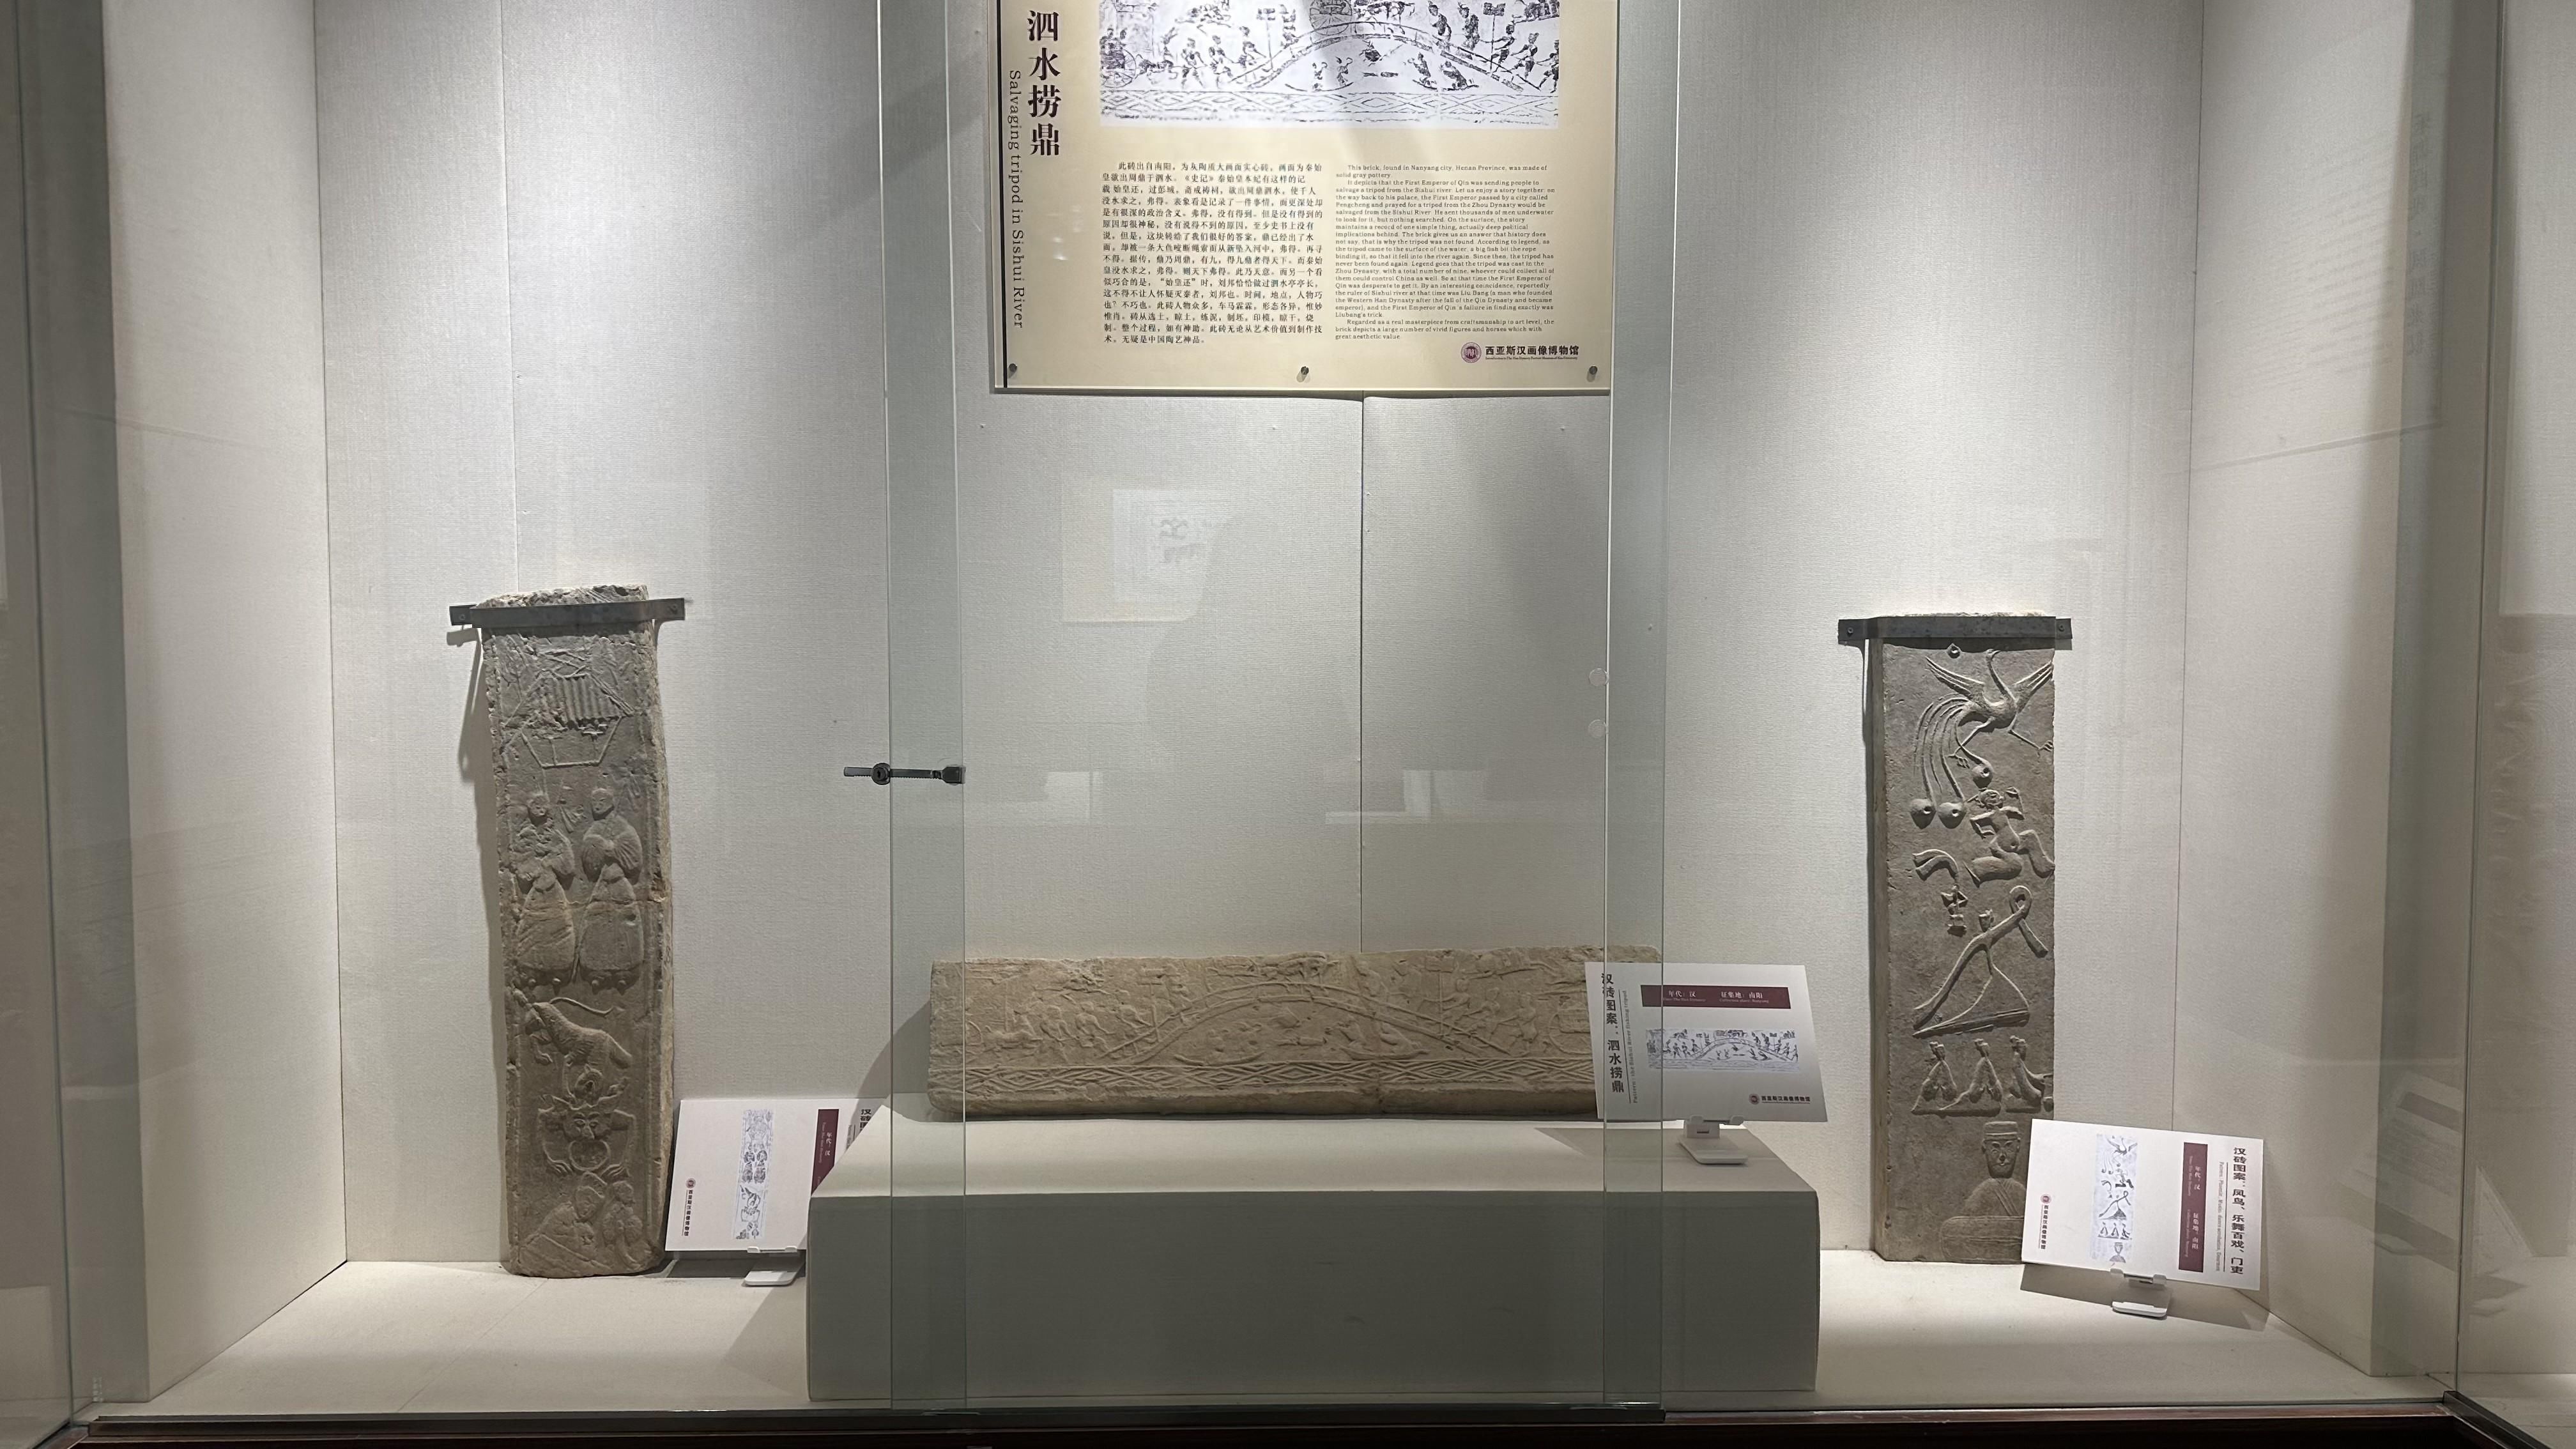 泗水捞鼎
Salvaging tripod in Sishui River
此砖出自南阳，为灰陶质大画面实心砖，画面为秦始
皇欲出周鼎于泗水。《史记》秦始皇本纪有这样的记
载 始皇还，过彭城，斋戒祷祠，欲出周鼎泗水，使千人
没水求之，弗得。表象看是记录了一件事情，而更深处却
是有很深的政治含义。弗得，没有得到。但是没有得到的
原因却很神秘，没有说得不到的原因，至少史书上没有
说。但是，这块转给了我们很好的答案，鼎已经出了水
面，却被一条大鱼咬断绳索而从新坠入河中，弗得。再寻
不得。据传，鼎乃周鼎，有九，得九鼎者得天下。而秦始
皇没水求之，弗得。则天下弗得。此乃天意。而另一个看
似巧合的是，“始皇还”时，刘邦恰恰做过泗水亭亭长，
这不得不让人怀疑灭秦者，刘邦也。时间，地点，人物巧
也？不巧也。此砖人物众多，车马霖霖，形态各异，惟妙
惟肖。砖从选土，晾土，练泥，制坯，印模，晾干，烧
制。整个过程，如有神助。此砖无论从艺术价值到制作技
术。无疑是中国陶艺神品。
This brick, found in Nanyang city, Henan Province, was made of
solid gray pottery.
It depicts that the First Emperor of Qin was sending people to
salvage a tripod from the Sishui river. Let us enjoy a story together: on
the way back to his palace, the First Emperor passed by a city called
Pengcheng and prayed for a tripod from the Zhou Dynasty would be
salvaged from the Sishui River. He sent thousands of men underwater
to look for it, but nothing searched. On the surface, the story
maintains a record of one simple thing, actually deep political
implications behind. The brick gives us an answer that history does
not say, that is why the tripod was not found. According to legend, as
the tripod came to the surface of the water, a big fish bit the rope
binding it, so that it fell into the river again. Since then, the tripod has
never been found again. Legend goes that the tripod was cast in the
Zhou Dynasty, with a total number of nine, whoever could collect all of
them could control China as well. So at that time the First Emperor of
Qin was desperate to get it. By an interesting coincidence, reportedly
the ruler of Sishui river at that time was Liu Bang (a man who founded
the Western Han Dynasty after the fall of the Qin Dynasty and became
emperor), and the First Emperor of Qin's failure in finding exactly was
Liubang's trick.
Regarded as a real masterpiece from craftsmanship to art level, the
brick depicts a large number of vivid figures and horses which with
great aesthetic value.
西亚斯汉画像博物馆
汉砖
年代：汉
西亚斯汉画像博物馆
汉砖图案：泗水捞鼎
年代：汉 征集地：南阳
西亚斯汉画像博物馆
汉砖图案：凤鸟、乐舞百戏、门吏
年代：汉 征集地：南阳
西亚斯汉画像博物馆